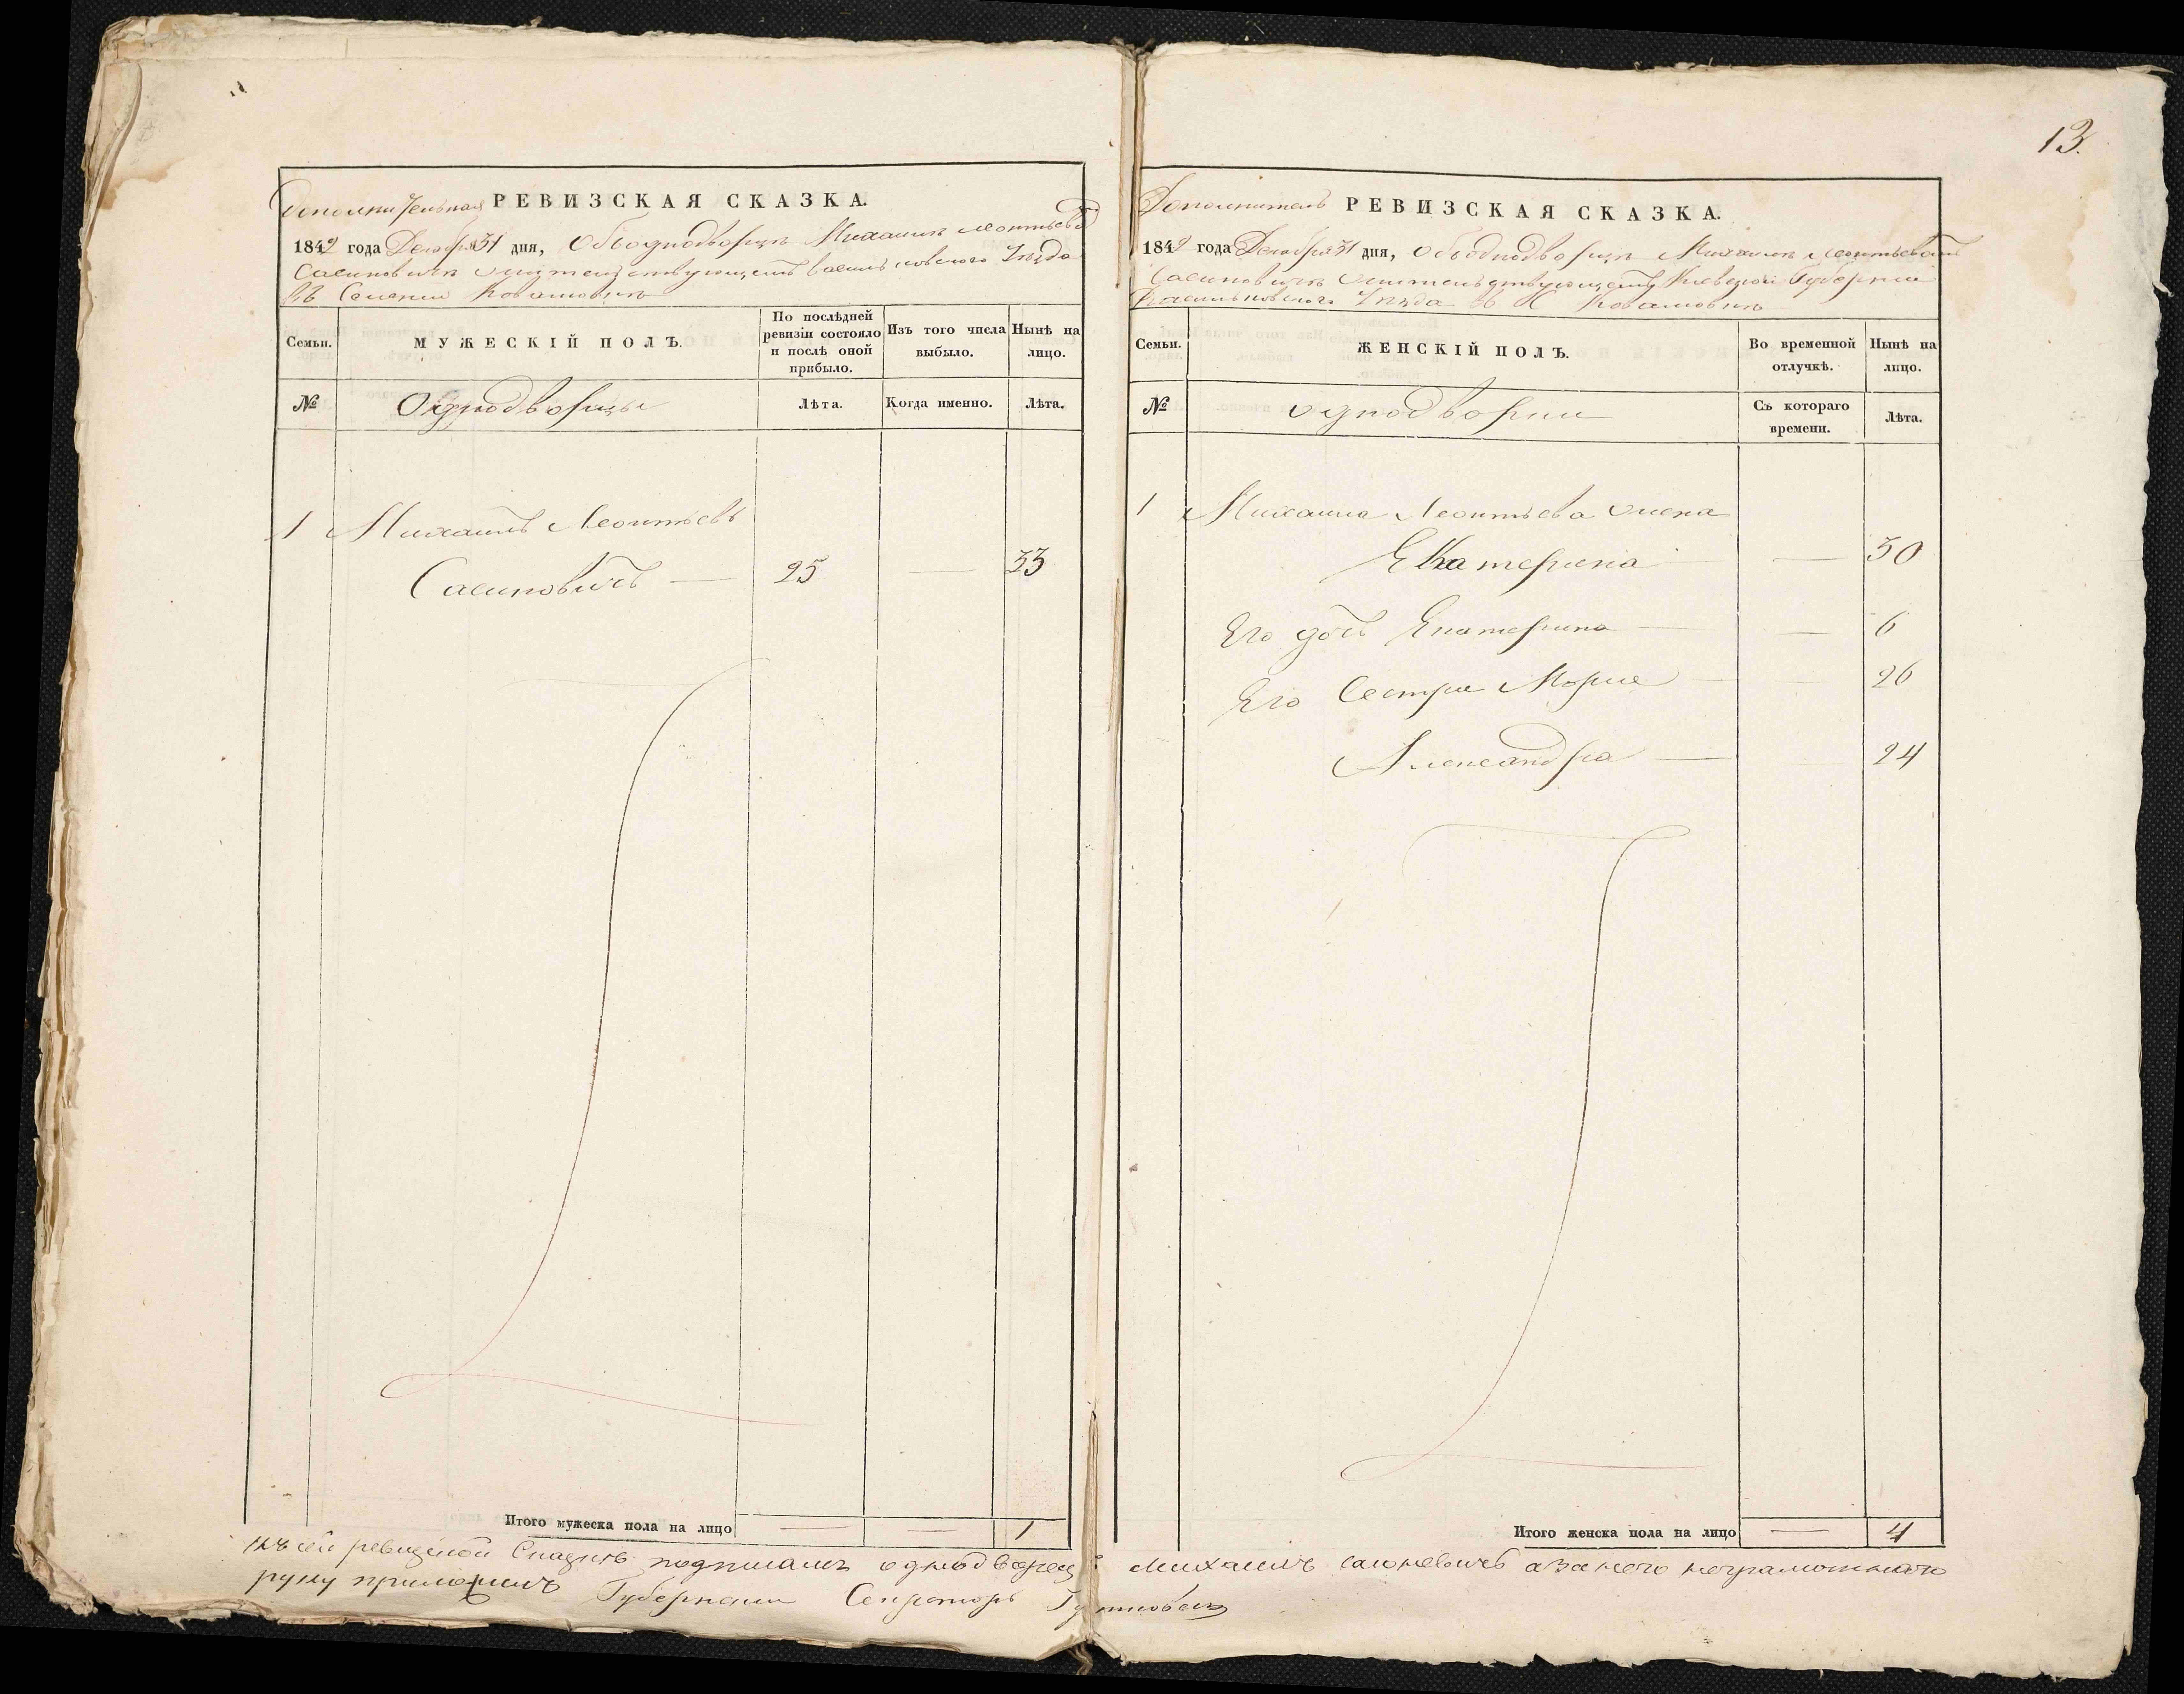 Дополнительная РЕВИЗСКАЯ СКАЗКА.
1842 года Декабря 31 дня, Объ однодворцѣ Михаилѣ Леонтьевѣ
жительствующемъ Васильковскаго Уѣзда
въ Селении
Семьи.
МУЖЕСКІЙ ПОЛЪ.
По послѣдней ревизіи состояло и послѣ оной прибыло.
Изъ того числа выбыло.
Нынѣ на лицо.
№
Однодворцы
Лѣта.
Когда именно.
Лѣта.
1 Михаилъ Леонтьевъ
Сасиновичъ — 25 — 33
Итого мужеска пола на лицо — — 1
13.
Дополнитель РЕВИЗСКАЯ СКАЗКА.
1842 года Декабря 31 дня, Объ однодворцѣ Михаилѣ Леонтьевѣ
жительствующемъ Киевской Губернии
Васильковскаго Уѣзда въ С
Семьи.
ЖЕНСКІЙ ПОЛЪ.
Во временной отлучкѣ.
Нынѣ на лицо.
№
Однодворки
Съ котораго времени.
Лѣта.
1 Михаила Леонтьева жена
Екатерина — 30
Его дочь Екатерина — — 6
Его Сестры Марья — — 26
Александра — 24
Итого женска пола на лицо — 4
Къ сей ревизской Сказкѣ подписалъ однодворец Михаилъ а за него неграмотнаго
руку приложилъ Губернски Секретарь